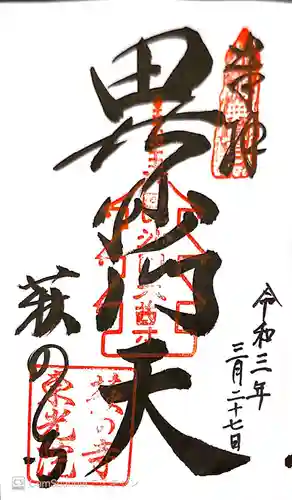 奉拝
令和三年
三月二十七日
毘沙門天
萩のてら
萩の寺
東光院